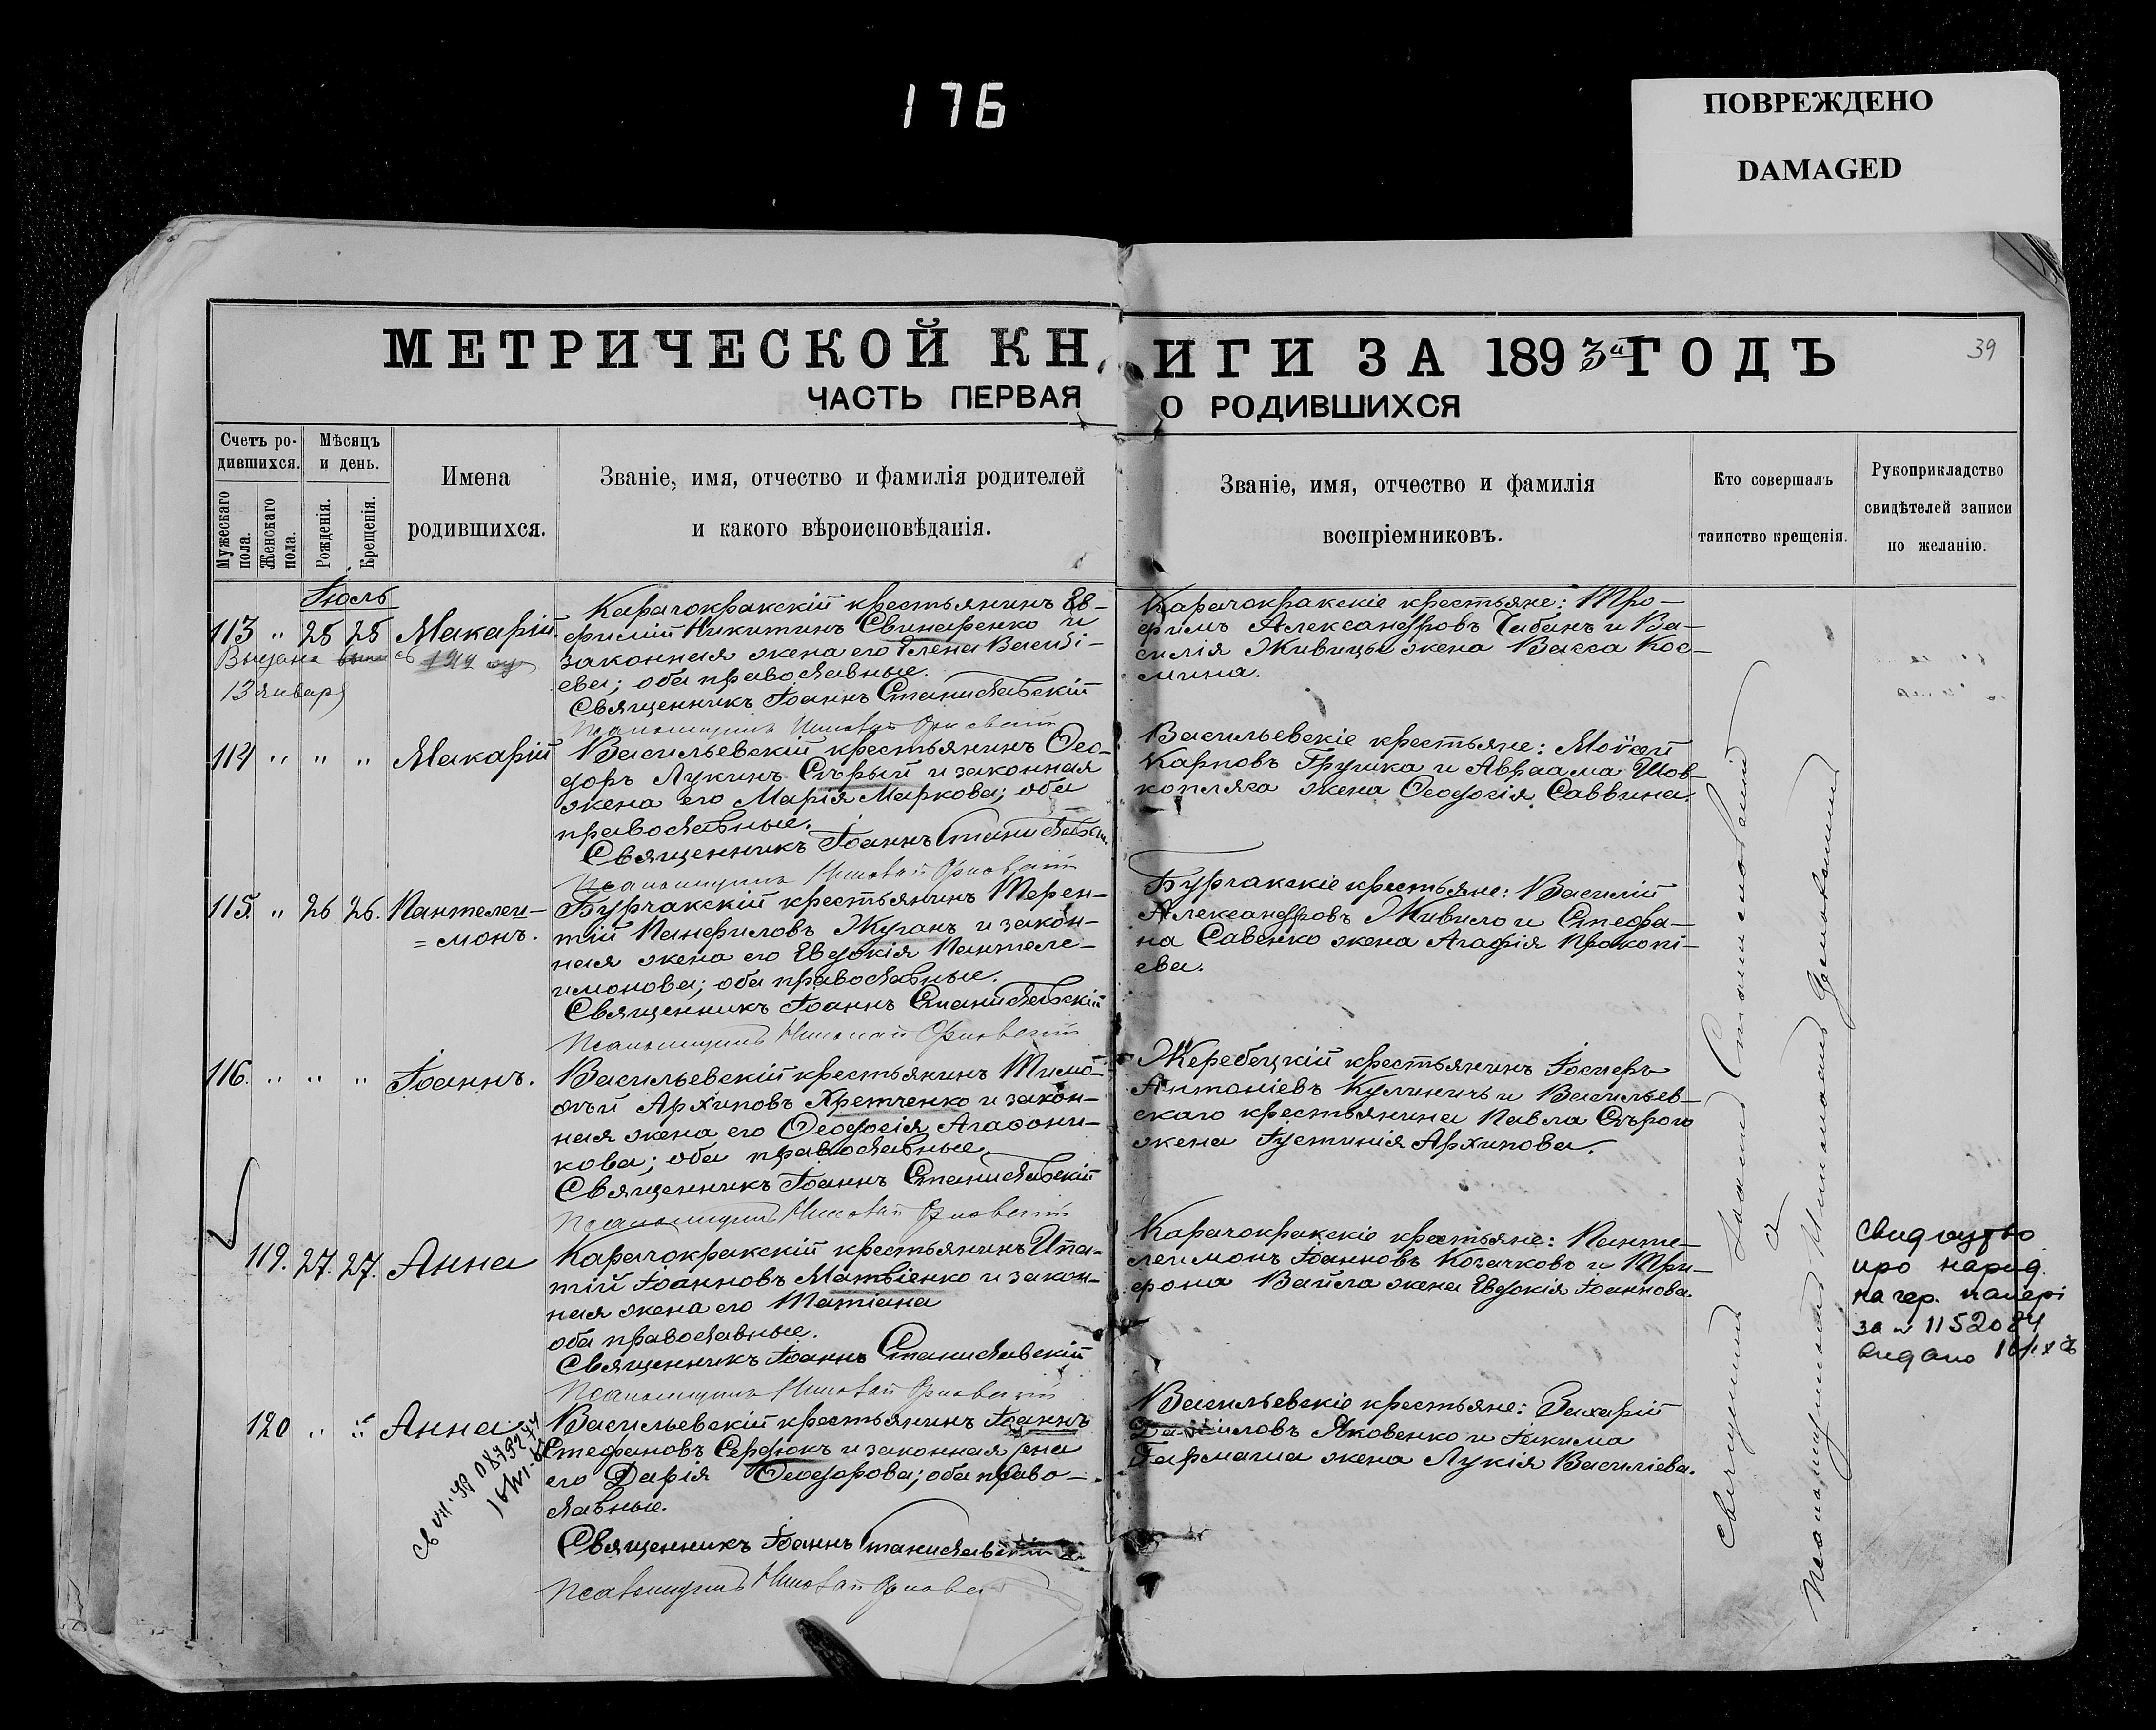 176
ПОВРЕЖДЕНО
DAMAGED
МЕТРИЧЕСКОЙ КН
ИГИ ЗА 1893й ГОДЪ
39
ЧАСТЬ ПЕРВАЯ
О РОДИВШИХСЯ
Счетъ ро-
дившихся.
Мужескаго
пола.
Женскаго
пола.
Мѣсяцъ
и день.
Рожденія.
Крещенія.
Имена
родившихся.
Званіе, имя, отчество и фамилія родителей
и какого вѣроисповѣданія.
Званіе, имя, отчество и фамилія
воспріемниковъ.
Кто совершалъ
таинство крещенія.
Рукоприкладство
свидѣтелей записи
по желанію.
Іюль
113 " 25 25 Макарій.
Выдана
13 января
Карачокракскій крестьянинъ Ев-
фимій Никитинъ Свинаренко и
законная жена его Елена Василі-
ева; оба православные.
Священникъ Іоаннъ Станиславскій
Карачокракскіе крестьяне: Тро-
фимъ Александровъ Чабанъ и Ва-
силія Живицы жена Васса Кос-
мина.
114 " " " Макарій
Васильевскій крестьянинъ Ѳео-
доръ Лукинъ Сѣрый и законная
жена его Марія Маркова; оба
православные.
Священникъ Іоаннъ Станиславскій
Васильевскіе крестьяне: Моѵсей
Карповъ Грушка и Авраама Шов-
копляса жена Ѳеодосія Саввина.
115. " 26 26. Пантелеи-
=монъ.
Бурчакскій крестьянинъ Терен-
тій Панфиловъ Жуганъ и закон-
ная жена его Евдокія Пантеле-
имонова; оба православные.
Священникъ Іоаннъ Станиславскій
Псаломщикъ Николай
Бурчакскіе крестьяне: Василій
Александровъ Живило и Стефа-
на Савенко жена Агафія Прокопі-
ева.
116. " " " Іоаннъ.
Васильевскій крестьянинъ Тимо-
ѳей Архиповъ Яретченко и закон-
ная жена его Ѳеодосія Агаѳони-
кова; оба православные.
Священникъ Іоаннъ Станиславскій
Псаломщикъ Николай
Жеребецкій крестьянинъ Іосифъ
Антоніевъ Кулиничъ и Васильев-
скаго крестьянина Павла Сѣрого
жена Іустинія Архипова.
119. 27. 27. Анна
Карачокракскій крестьянинъ Ипа-
тій Іоанновъ Матвіенко и закон-
ная жена его Татіана
оба православные.
Священникъ Іоаннъ Станиславскій
Псаломщикъ Николай
Карачокракскіе крестьяне: Панте-
леимонъ Іоанновъ Козачковъ и Три-
фона Вайла жена Евдокія Іоаннова.
Свидоцтво
про народ.
на гер. папері
за № 1152084
видано
120 " " Анна
Васильевскій крестьянинъ Іоаннъ
Стефановъ Сердюкъ и законная жена
его Дарія Ѳеодорова; оба право-
славные.
Священникъ Іоаннъ Станиславскій
Псаломщикъ Николай
Васильевскіе крестьяне: Захарій
Даніиловъ Яковенко и Іакима
Гармаша жена Лукія Василіева.
Священникъ Іоаннъ Станиславскій
и
Псаломщикъ Николай